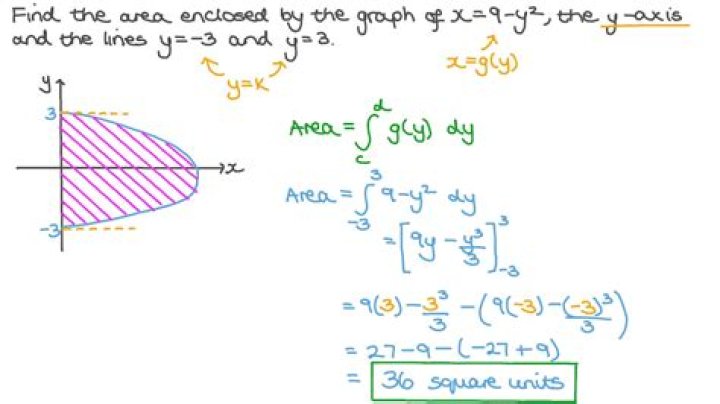 Find the area enclosed by the graph of x=9-y², the y-axis
and the lines y=-3 and y=3.
y=k
x=g(y)
y
3
x
-3
Area = ∫_c^d g(y) dy
Area = ∫_-3^3 9-y² dy
= [9y - y³/3]_-3^3
= 9(3) - 3³/3 - (9(-3) - (-3)³/3)
= 27-9-(-27+9)
= 36 square units